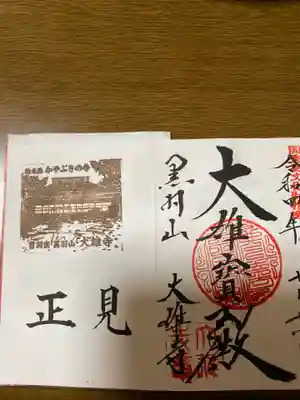 かやぶきの寺
曹洞宗 黒羽山 大雄寺
正見
令和四年
大雄寶殿
黒羽山 大雄寺